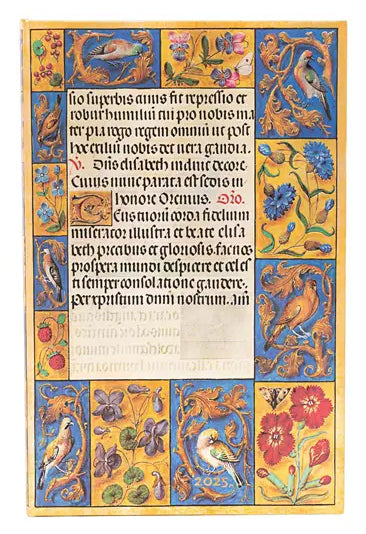 sio superbis cuius fit repressio et
robur humiliū tui pro nobis ma
ter pia rogo regem omniū ut post
hoc exiliū nobis det vera gaudia.
V. Diffusa elisabeth in diue decore.
Cuius nunc parata est sedis in
honore Oremus. Oro.
Deus tuorū corda fidelium
miserator illustra et beate elisa
beth precibus et gloriosis. fac nos
prospera mundi despicere et celes
ti semper consolatione gaudere.
per xpristum dnm̄ nostrum. am̄
2025